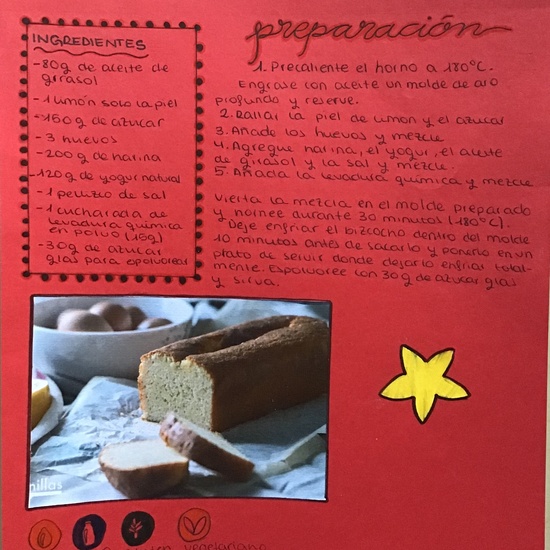 INGREDIENTES
-80g de aceite de
girasol
-1 limón solo la piel
-160g de azúcar
-3 huevos
-200g de harina
-120g de yogur natural
-1 pellizco de sal
-1 cucharada de
levadura química
en polvo (16g)
-30g de azúcar
glas para espolvorear
preparación
1. Precaliente el horno a 180°C.
Engrase con aceite un molde de aro
profundo y reserve.
2. Rallar la piel de limon y el azucar
3. Añade los huevos y mezcle
4. Agregue harina, el yogur, el aceite
de girasol y la sal y mezcle.
5. Añada la levadura química y mezcle
Vierta la mezcla en el molde preparado
y hornee durante 30 minutos (180°C).
Deje enfriar el bizcocho dentro del molde
10 minutos antes de sacarlo y ponerlo en un
plato de servir donde dejarlo enfriar total-
mente. Espolvoree con 30g de azucar glas
y sirva.
nillas
vegetariano